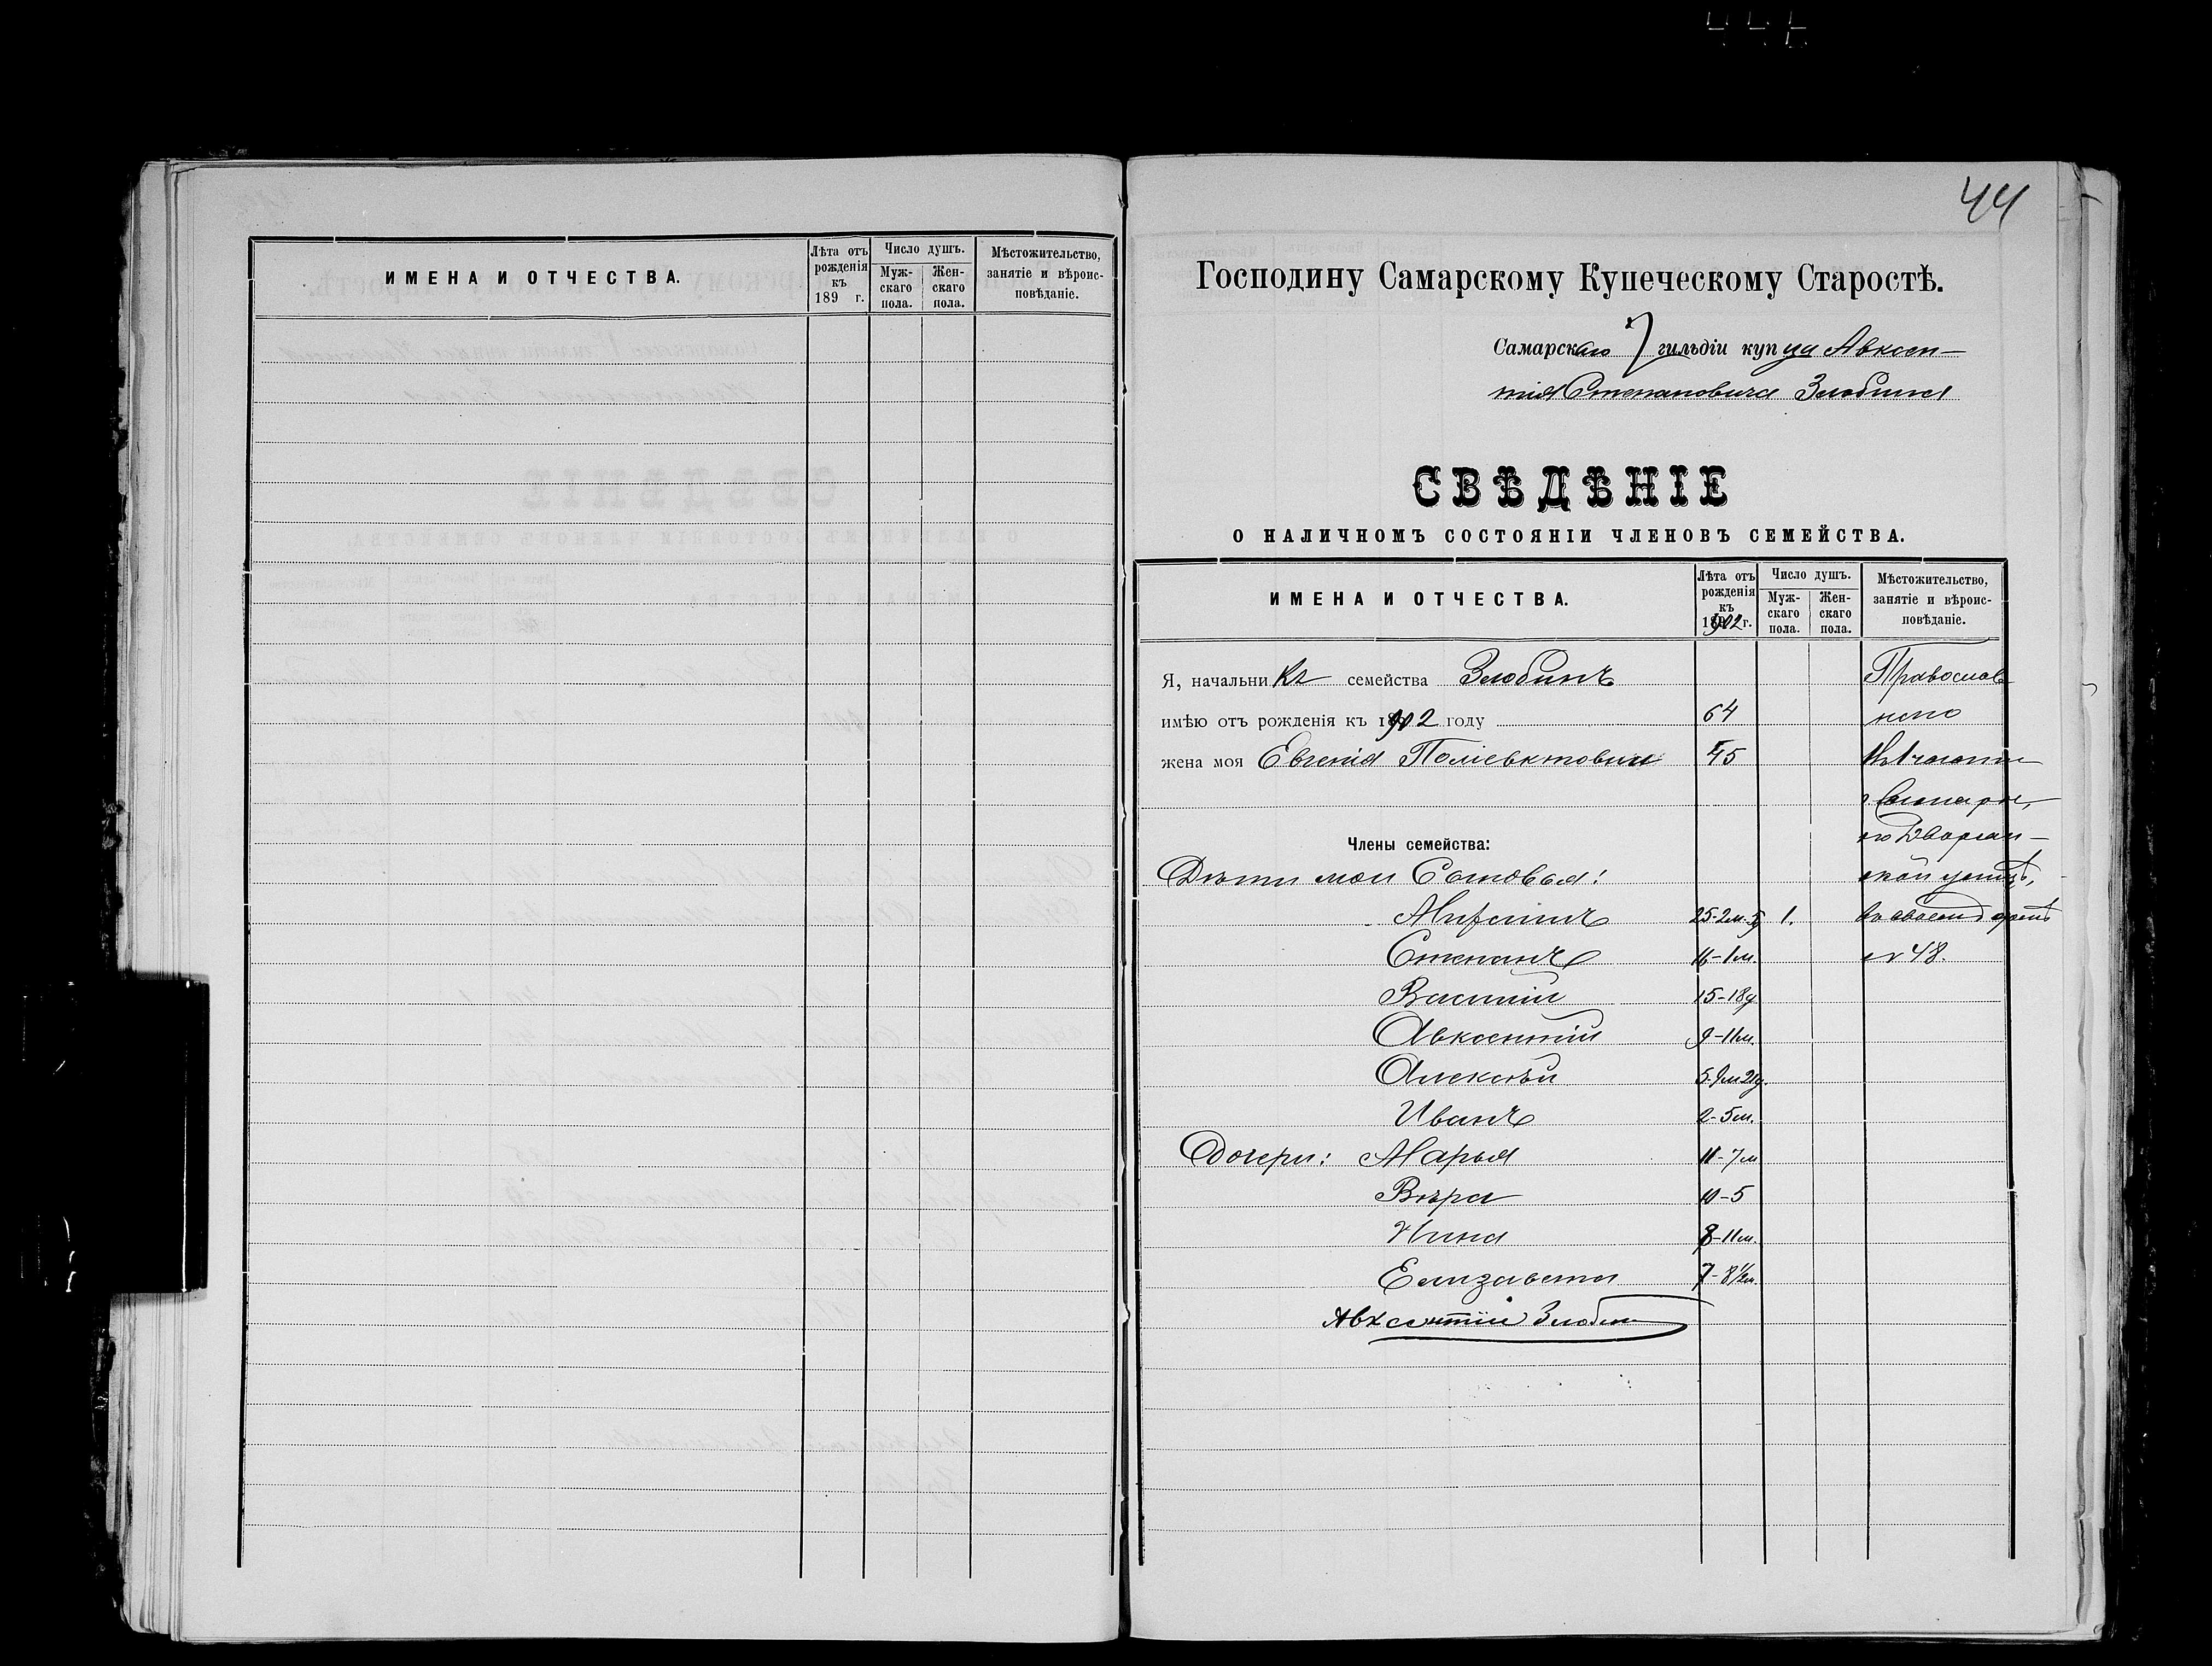 ИМЕНА И ОТЧЕСТВА.
Лѣта отъ рожденія къ 189 г.
Число душъ.
Мужскаго пола.
Женскаго пола.
Мѣстожительство, занятіе и вѣроисповѣданіе.
44
Господину Самарскому Купеческому Старостѣ.
Самарскаго гильдіи купца Авксен-
тія Степановича Злобина
СВѢДѢНІЕ
О НАЛИЧНОМЪ СОСТОЯНІИ ЧЛЕНОВЪ СЕМЕЙСТВА.
ИМЕНА И ОТЧЕСТВА.
Лѣта отъ
рожденія
къ
1902 г.
Число душъ.
Муж-
скаго
пола.
Жен-
скаго
пола.
Мѣстожительство,
занятіе и вѣроис-
повѣданіе.
Я, начальникъ семейства Злобинъ Православ
имѣю отъ рожденія къ 1902 году 64
жена моя Евгенія Поліевктовна 45
г Самара,
по Дворян-
Члены семейства:
Дѣти мои Сыновья: ской улицѣ,
25-2м-5д 1. въ своемъ домѣ
Степанъ 16-1м. № 48.
Василій 15-18д
Авксентій 9-11м.
Алексѣй 5-9м 21д.
Иванъ 2-5м.
Дочери: Марья 11-7м
Вѣра 10-5
Нина 8-11м.
Елизавета 7-8½м.
Авксентій Злобин